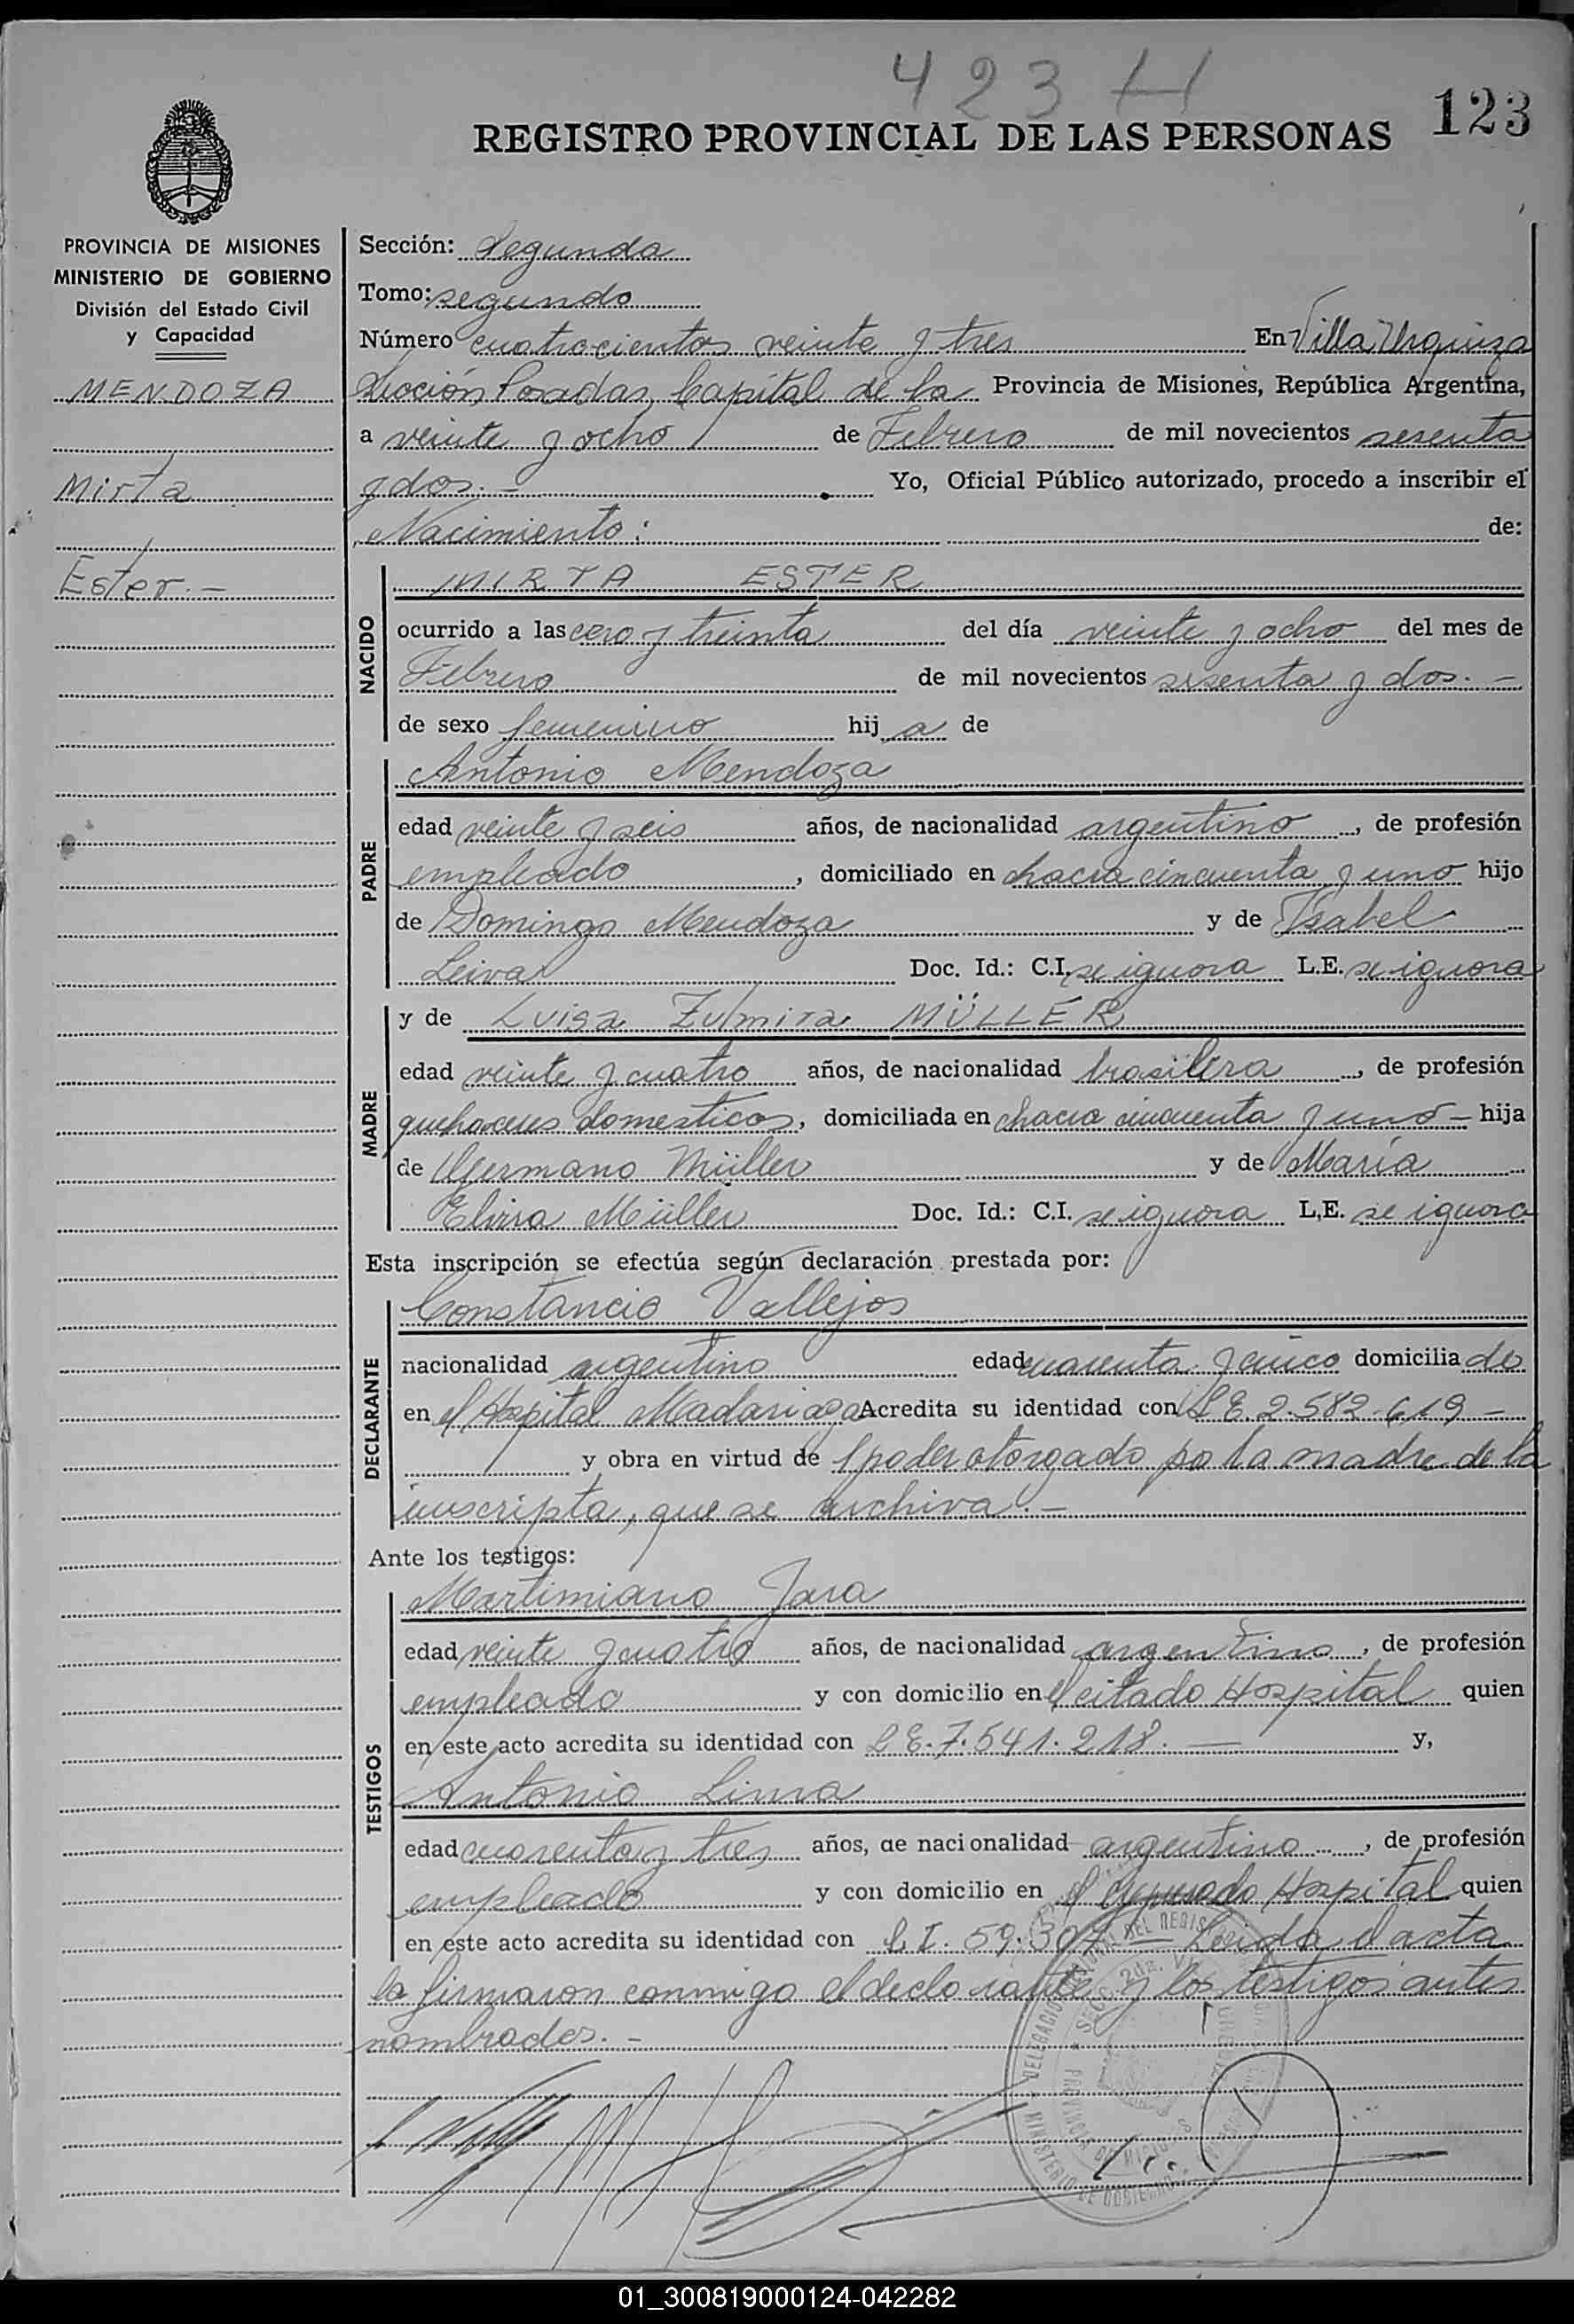 423 H
123
REGISTRO PROVINCIAL DE LAS PERSONAS
PROVINCIA DE MISIONES
MINISTERIO DE GOBIERNO
División del Estado Civil
y Capacidad
MENDOZA
Mirta
Ester.-
Sección: Segunda
Tomo: segundo
Número cuatrocientos veinte y tres En Villa Urquiza
Sección Posadas, Capital de la Provincia de Misiones, República Argentina,
a veinte y ocho de Febrero de mil novecientos sesenta
y dos.- Yo, Oficial Público autorizado, procedo a inscribir el
Nacimiento: de:
NACIDO
MIRTA ESTER
ocurrido a las cero y treinta del día veinte y ocho del mes de
Febrero de mil novecientos sesenta y dos.-
de sexo femenino hij a de
PADRE
Antonio Mendoza
edad veinte y seis años, de nacionalidad argentino, de profesión
empleado, domiciliado en chacra cincuenta y uno hijo
de Domingo Mendoza y de Ysabel
Leiva Doc. Id.: C.I. se ignora L.E. se ignora
MADRE
y de Luisa Zulmira MÜLLER
edad veinte y cuatro años, de nacionalidad brasilera, de profesión
quehaceres domesticos, domiciliada en chacra cincuenta y uno - hija
de Germano Müller y de María
Elvira Müller Doc. Id.: C.I. se ignora L.E. se ignora
Esta inscripción se efectúa según declaración prestada por:
DECLARANTE
Constancio Vallejos
nacionalidad argentino edad cuarenta y cinco domicilia do
en el Hospital Madariaga Acredita su identidad con L E 2.582.619 -
y obra en virtud de l poder otorgado po la madre de la
inscripta, que se archiva.-
Ante los testigos:
TESTIGOS
Martimiano Jara
edad veinte y cuatro años, de nacionalidad argentino, de profesión
empleado y con domicilio en el citado Hospital quien
en este acto acredita su identidad con L E. 7.541.218. - y,
Antonio Lima
edad cuarenta y tres años, de nacionalidad argentino, de profesión
empleado y con domicilio en el Hospital quien
en este acto acredita su identidad con C I. 59.307 - Leida el acta
la firmaron conmigo el declarante y los testigos antes
nombrados.-
01_300819000124-042282